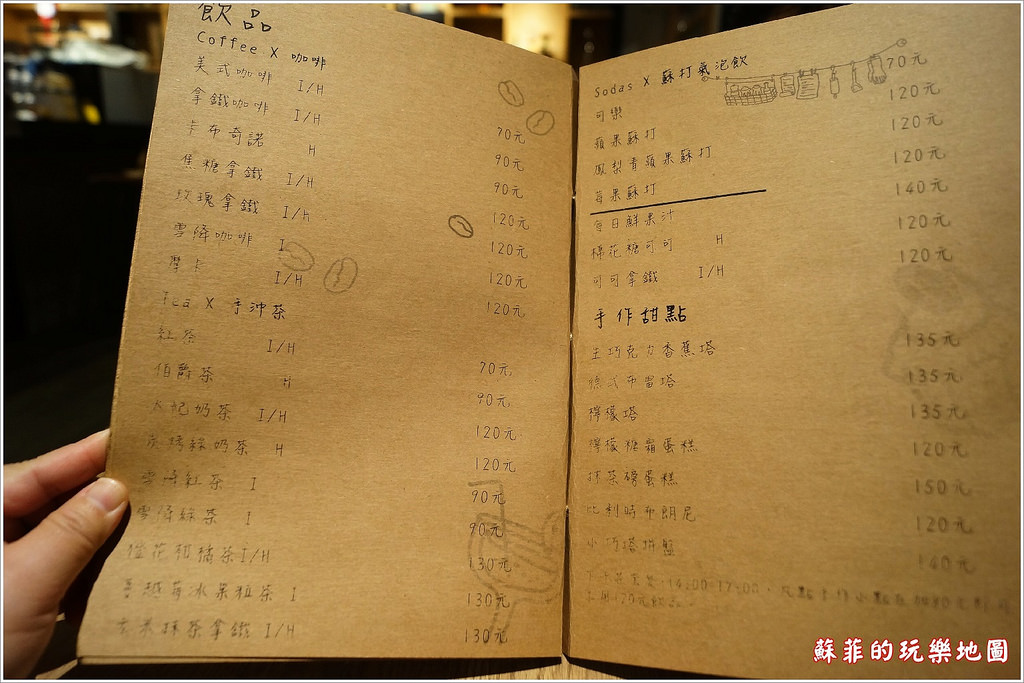 飲品
Coffee X 咖啡
美式咖啡 I/H 70元
拿鐵咖啡 I/H 90元
卡布奇諾 H 90元
焦糖拿鐵 I/H 120元
玫瑰拿鐵 I/h 120元
雪降咖啡 I 120元
摩卡 I/H 120元
Tea X 手沖茶
紅茶 I/H 70元
伯爵茶 H 90元
大妃奶茶 I/H 120元
炭烤綠奶茶 H 120元
雪降紅茶 I 90元
雪降綠茶 I 90元
橙花柑橘茶 I/H 130元
蔓越莓冰果粒茶 I 130元
玄米抹茶拿鐵 I/H 130元
Sodas X 蘇打氣泡飲
可樂 70元
蘋果蘇打 120元
鳳梨青蘋果蘇打 120元
莓果蘇打 120元
每日鮮果汁 140元
棉花糖可可 H 120元
可可拿鐵 I/H 120元
手作甜點
生巧克力香蕉塔 135元
德式布雷塔 135元
檸檬塔 135元
檸檬糖霜蛋糕 120元
抹茶磅蛋糕 150元
比利時布朗尼 120元
小巧塔拼盤 140元
14:00-17:00
120元飲品
蘇菲的玩樂地圖